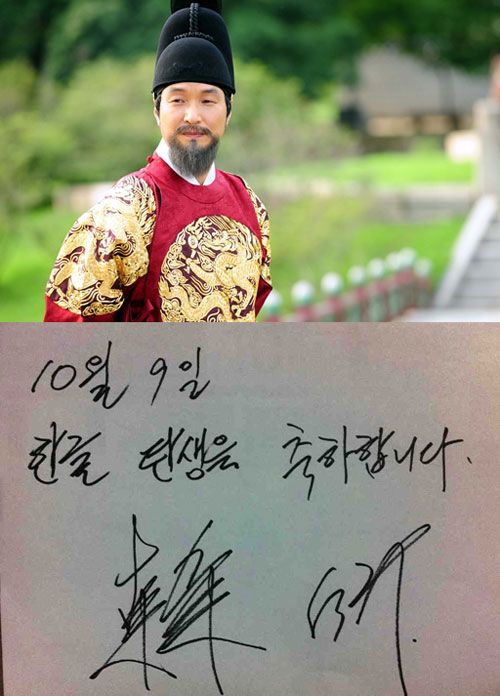 10월 9일
한글 탄생을 축하합니다.